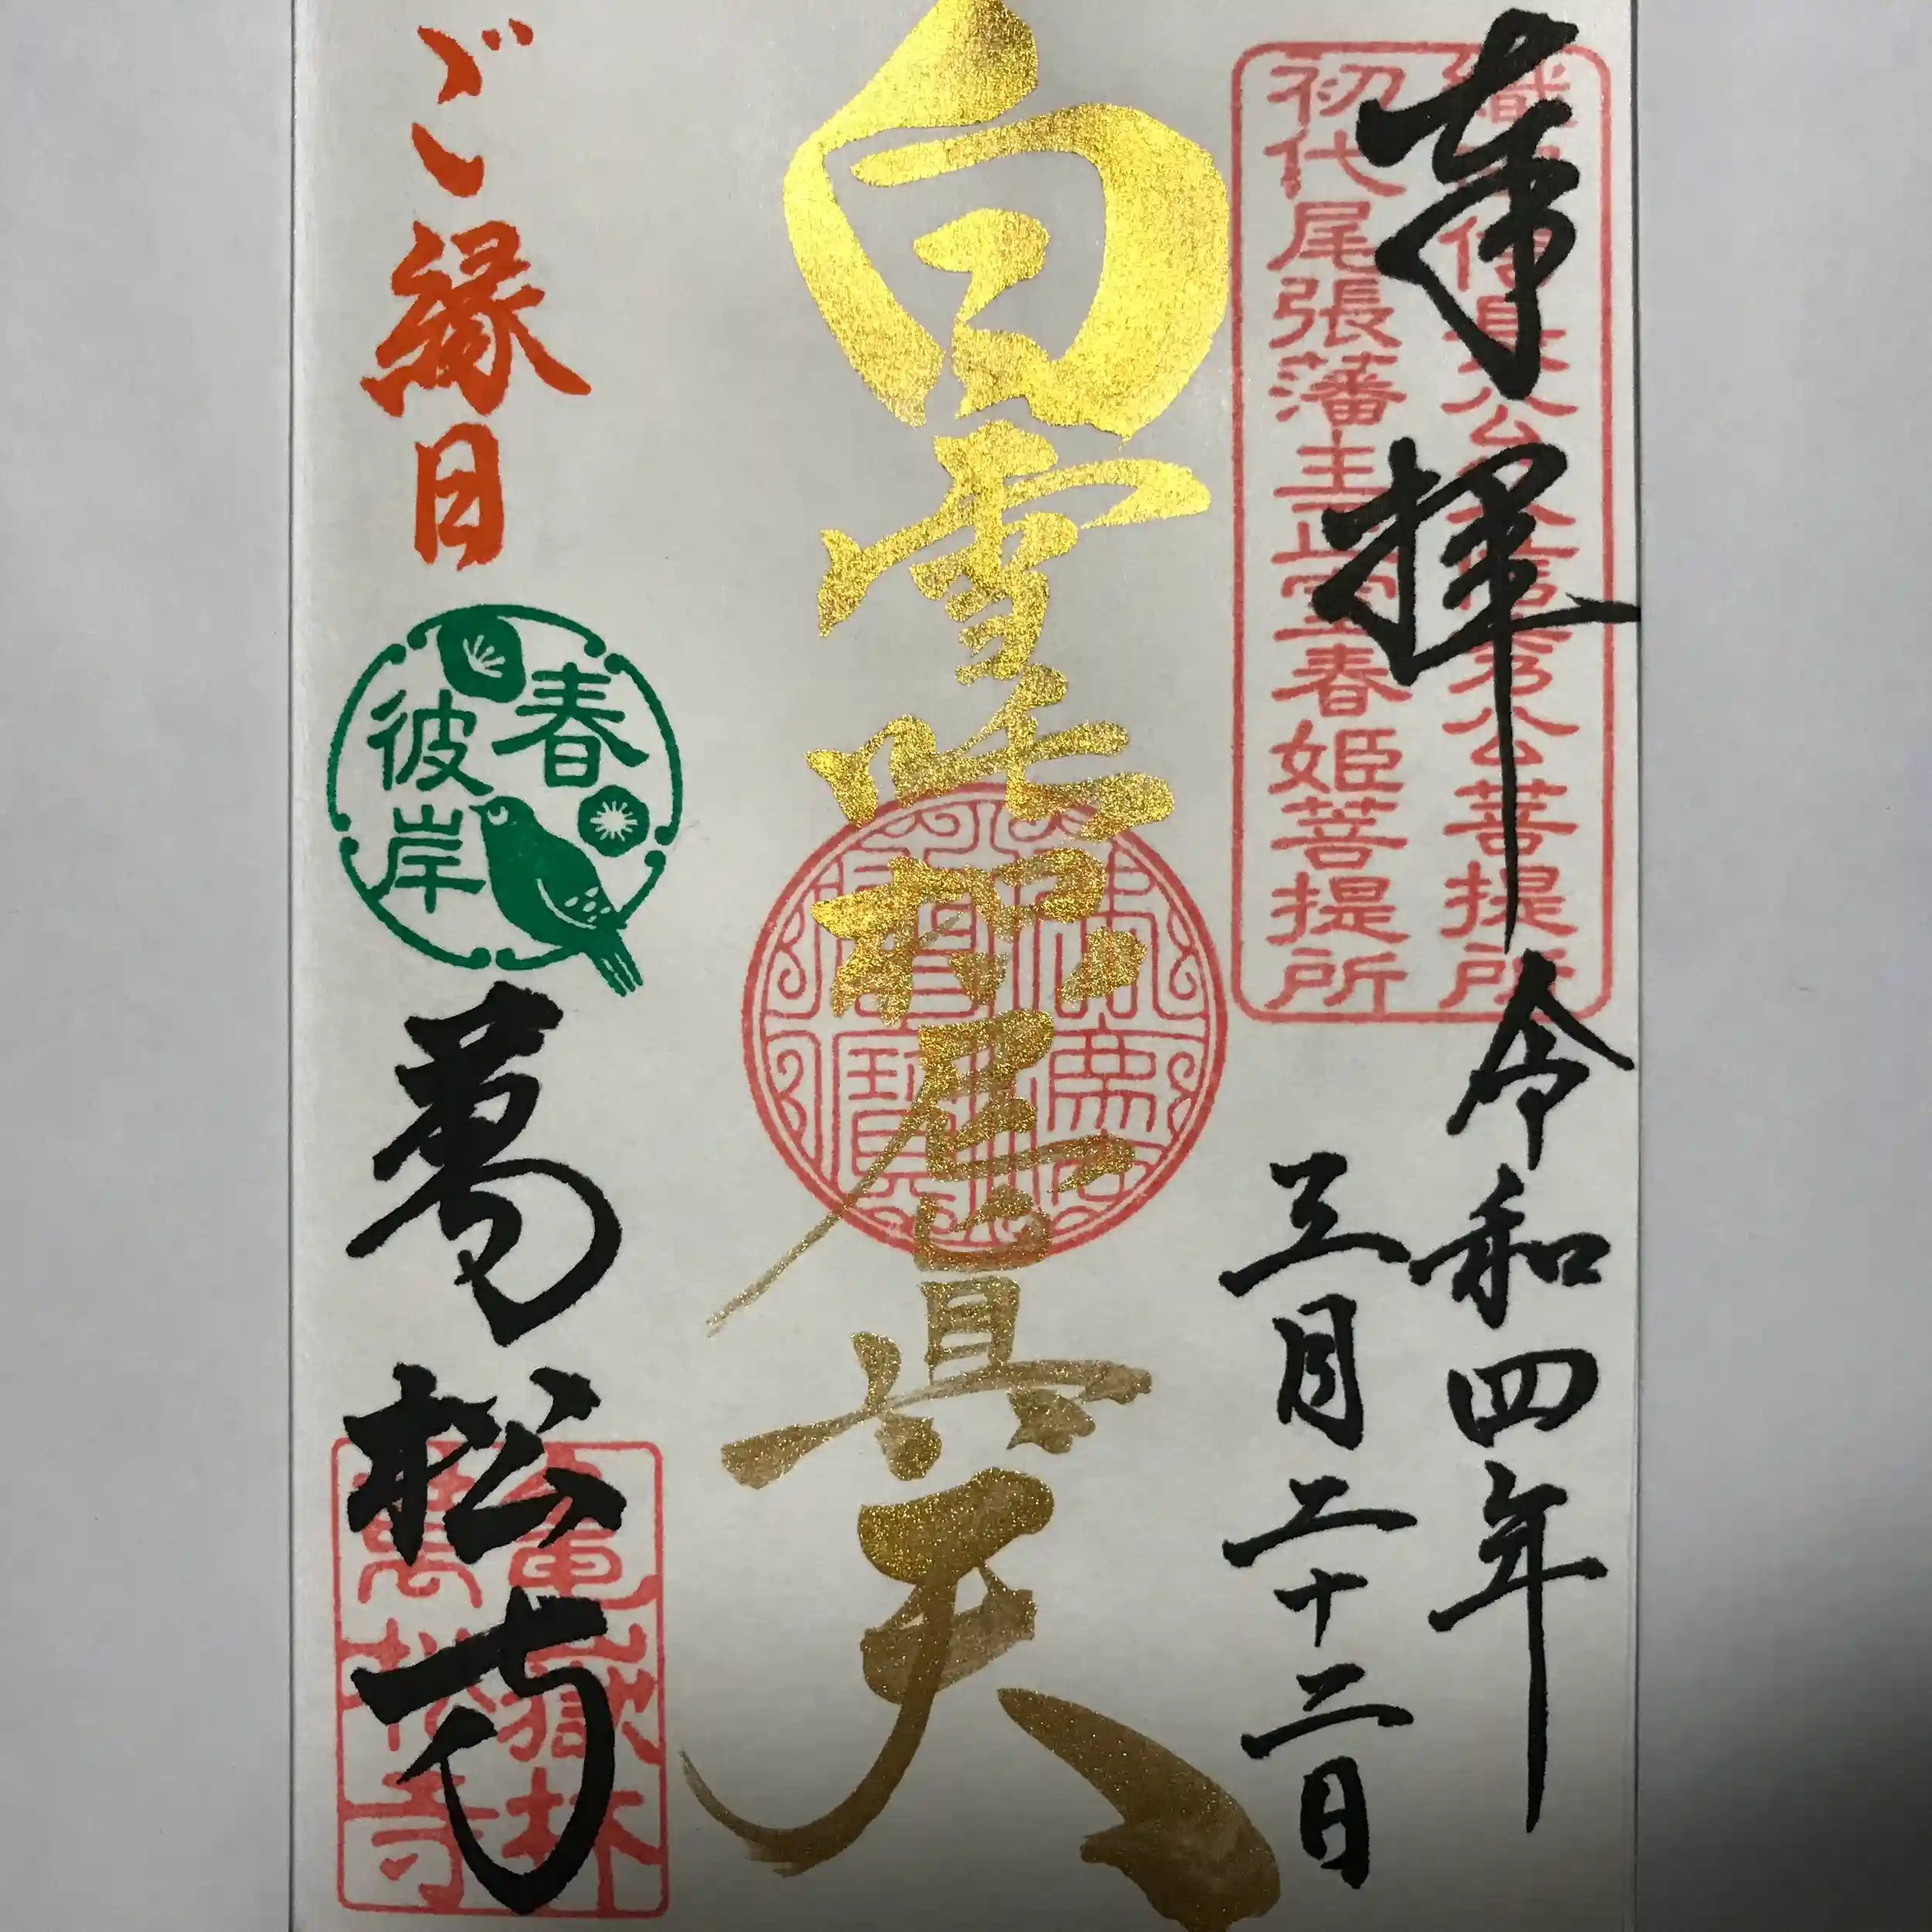 奉拝
織田信長公父信秀公菩提所
初代尾張藩主正室春姫菩提所
令和四年
三月二十二日
白雪稲荷尼真天
ご縁日
春
彼岸
萬松寺
亀嶽林
萬松寺